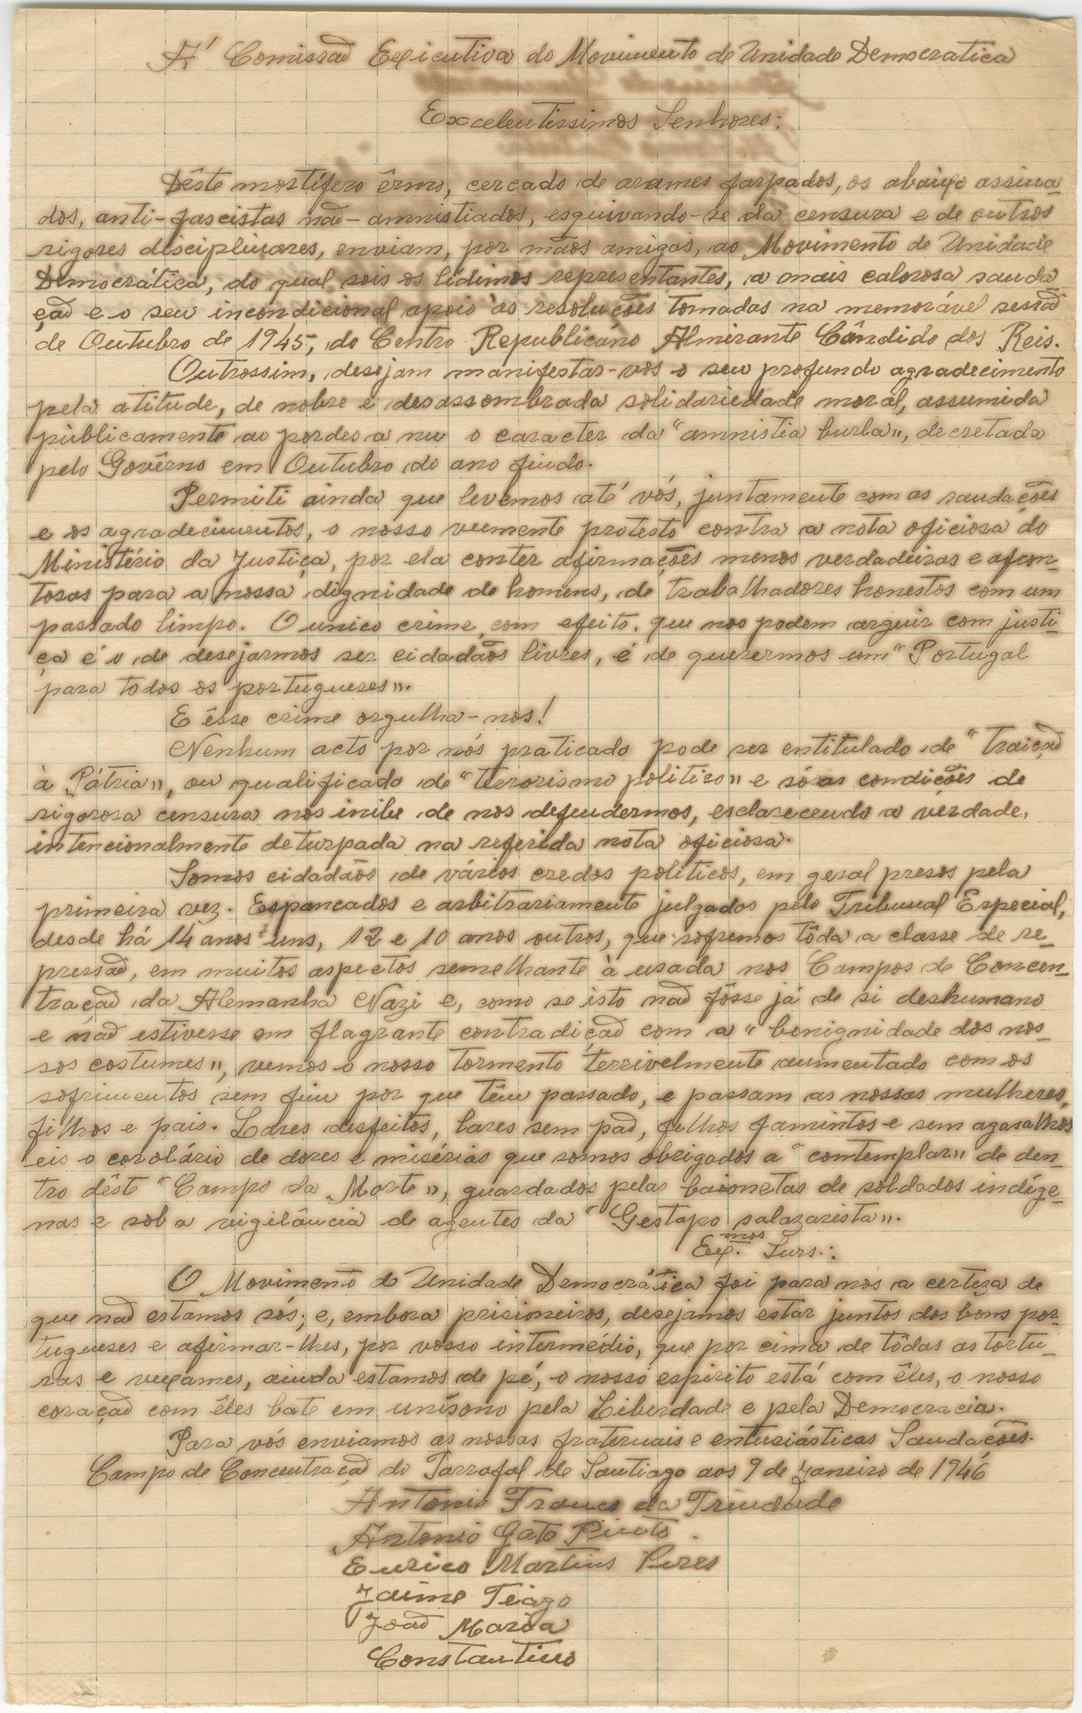 A' Comissão Executiva do Movimento de Unidade Democratica
Excelentissimos Senhores:
Dêste mortífero êrmo, cercado de arames farpados, os abaixo assina-
dos, anti-fascistas não-amnistiados, esquivando-se da censura e de outros
rigores desciplinares, enviam, por mãos amigas, ao Movimento de Unidade
Democrática, do qual sois os lídimos representantes, a mais calorosa sauda-
ção e o seu incondicional apoio às resoluções tomadas na memorável sessão
de Outubro de 1945, do Centro Republicano Almirante Cândido dos Reis.
Outrossim, desejam manifestar-vos o seu profundo agradecimento
pela atitude, de nobre e desassombrada solidariedade moral, assumida
públicamente ao pordes a nu o caracter da "amnistia burla", decretada
pelo Govêrno em Outubro do ano findo.
Permiti ainda que levemos até vós, juntamente com as saudações
e os agradecimentos, o nosso veemente protesto contra a nota oficiosa do
Ministério da Justiça, por ela conter afirmações menos verdadeiras e afron-
tosas para a nossa dignidade de homens, de trabalhadores honestos com um
passado limpo. O unico crime, com efeito, que nos podem arguir com justi-
ça é o de desejarmos ser cidadãos livres, é de querermos um "Portugal
para todos os portugueses".
E êsse crime orgulha-nos!
Nenhum acto por nós praticado pode ser entitulado de "traição
à Pátria", ou qualificado de "terrorismo politico" e só as condições de
rigorosa censura nos inibe de nos defendermos, esclarecendo a verdade,
intencionalmente deturpada na referida nota oficiosa.
Somos cidadãos de vários credos politicos, em geral presos pela
primeira vez. Espancados e arbitrariamente julgados pelo Tribunal Especial,
desde há 14 anos uns, 12 e 10 anos outros, que sofremos tôda a classe de re-
pressão, em muitos aspectos semelhante à usada nos Campos de Concen-
tração da Alemanha Nazi e, como se isto não fôsse já de si deshumano
e não estivesse em flagrante contradição com a "benignidade dos nos-
sos costumes", vemos o nosso tormento terrivelmente aumentado com os
sofrimentos sem fim por que têm passado, e passam as nossas mulheres,
filhos e pais. Lares desfeitos, lares sem pão, filhos famintos e sem agasalhos
eis o corolário de dores e misérias que somos obrigados a "contemplar" de den-
tro dêste "Campo da Morte", guardados pelas baionetas de soldados indíge-
nas e sob a vigilância de agentes da "Gestapo salazarista".
Ex.mos Snrs.:
O Movimento de Unidade Democrática foi para nos a certeza de
que não estamos sós; e, embora prisioneiros, desejamos estar juntos dos bons por-
tugueses e afirmar-lhes, por vosso intermédio, que por cima de tôdas as tortu-
ras e vexames, ainda estamos de pé, o nosso espirito está com êles, o nosso
coração com êles bate em uníssono pela Liberdade e pela Democracia.
Para vós enviamos as nossas fraternais e entusiásticas Saudações.
Campo de Concentração do Tarrafal de Santiago aos 9 de Janeiro de 1946
Antonio Franco da Trindade
Antonio Gato Pinto
Eurico Martins Pires
Jaime Tiago
João Maria
Constantino